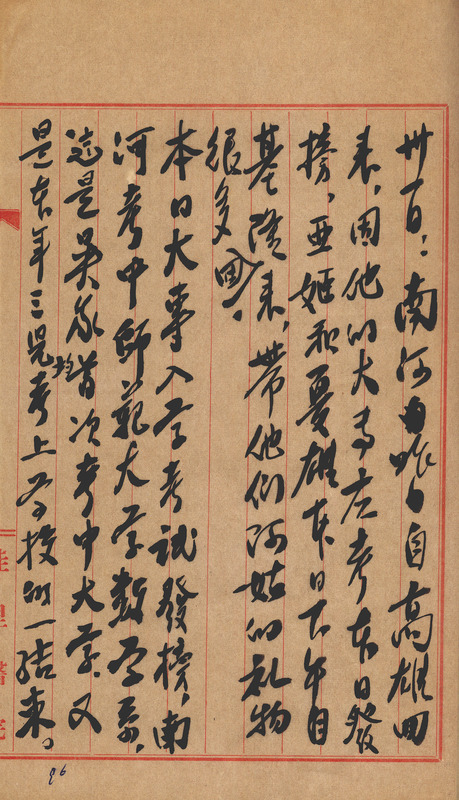 卅一日：南河由昨日自高雄回
来，因他的大专应考本日發
榜，亜姬和憂雄本日下午自
基隆来，带他们阿姑的礼物
很多回。
本日大專入学考試發榜，南
河考中師範大学数学系，
這是吴家首次考中大学。又
是本年三児均考上学校的一结束。
96